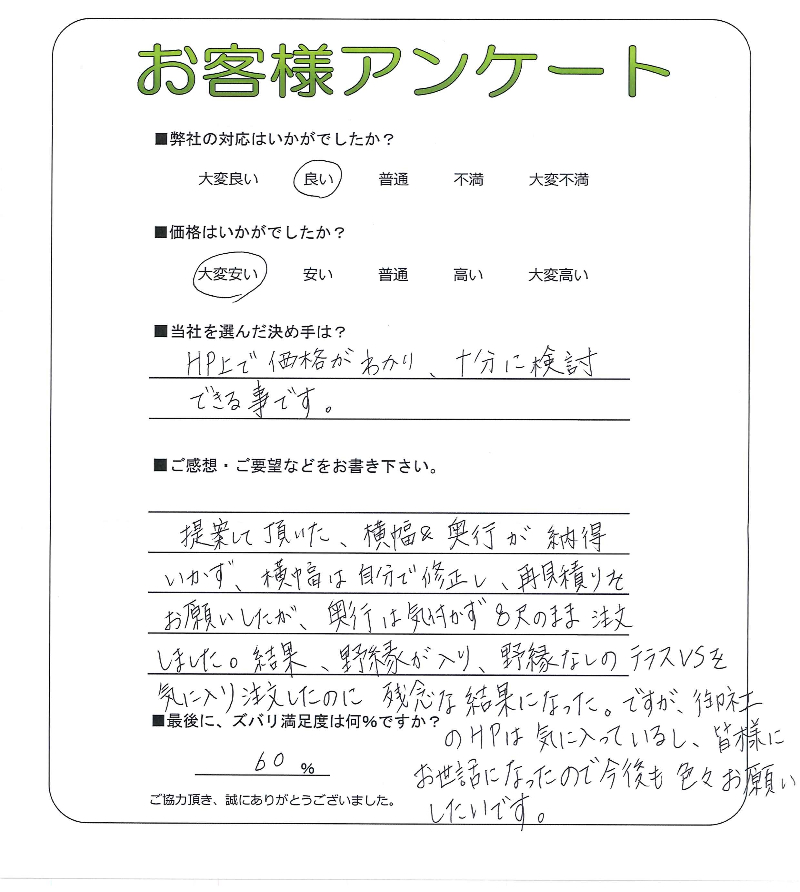 お客様アンケート
■弊社の対応はいかがでしたか？
大変良い 良い 普通 不満 大変不満
■価格はいかがでしたか？
大変安い 安い 普通 高い 大変高い
■当社を選んだ決め手は？
HP上で価格がわかり、十分に検討
できる事です。
■ご感想・ご要望などをお書き下さい。
提案して頂いた、横幅＆奥行が納得
いかず、横幅は自分で修正し、再見積りを
お願いしたが、奥行は気付かず8尺のまま注文
しました。結果、野縁が入り、野縁なしのテラスVSを
気に入り注文したのに残念な結果になった。ですが、御社
のHPは気に入っているし、皆様に
お世話になったので今後も色々お願い
したいです。
■最後に、ズバリ満足度は何%ですか？
60 %
ご協力頂き、誠にありがとうございました。